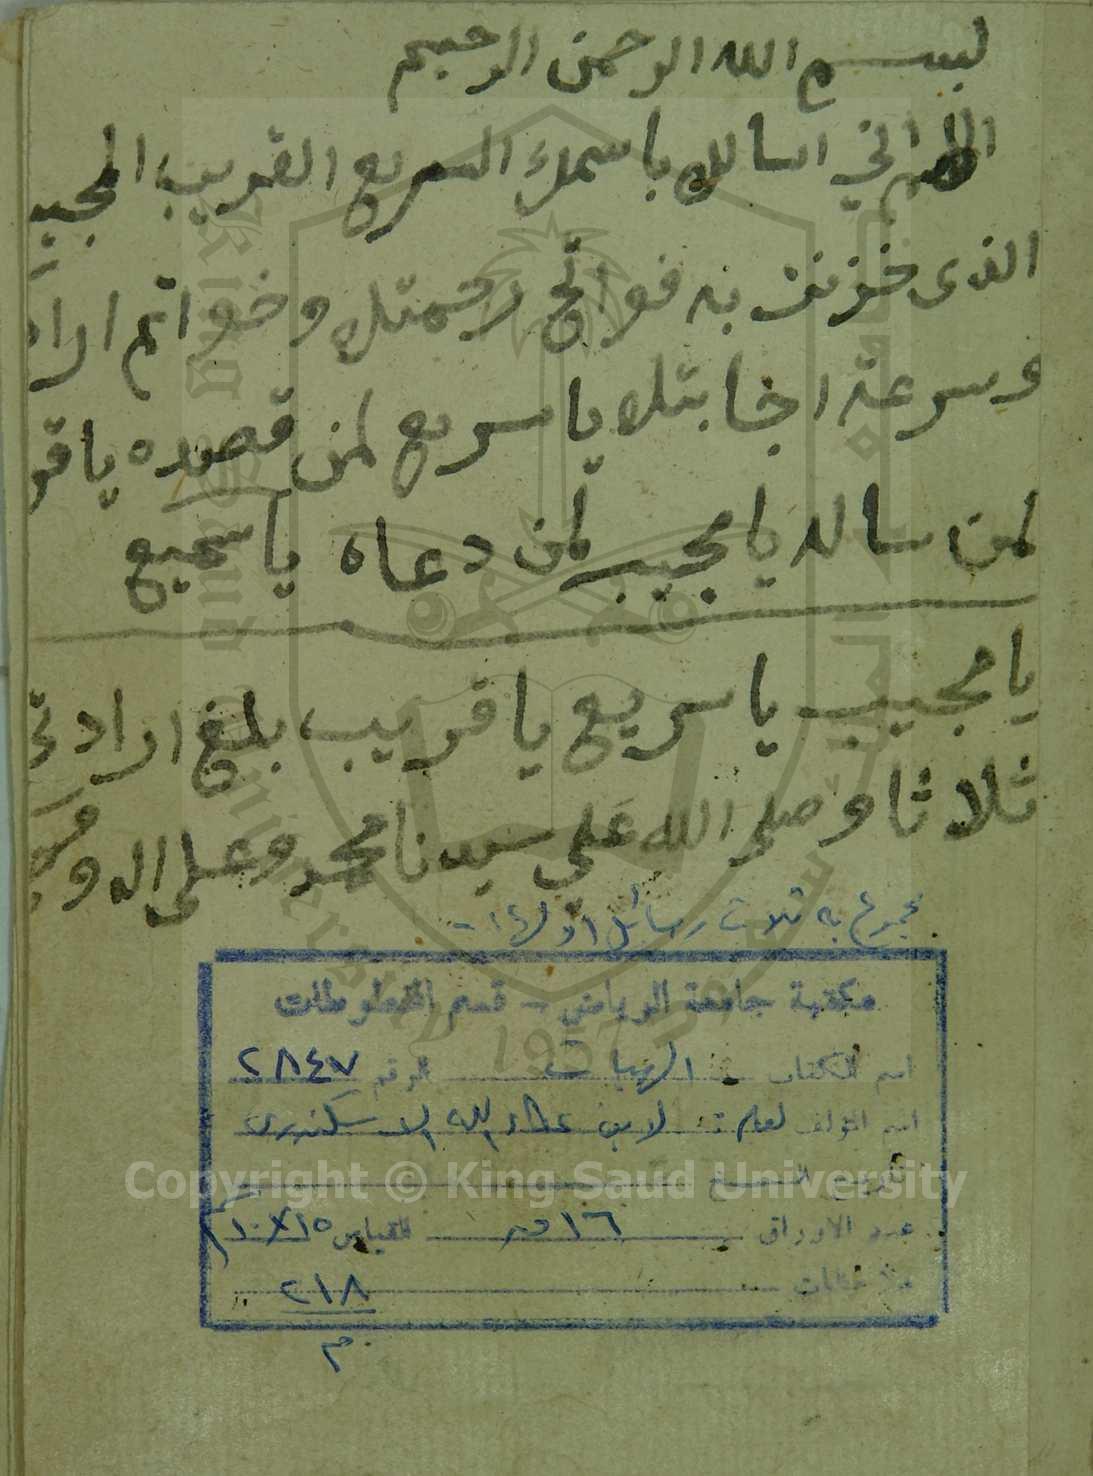 بسم الله الرحمن الرحيم
اللهم اني اسالك باسمك السريع القريب المجيب
الذى خزنت به فواتح رحمتك وخواتم اراد
وسرعة اجابتك يا سريع لمن قصده يا قر
لمن ساله يا مجيب لمن دعاه يا سميع
يا مجيب يا سريع يا قريب بلغ ارادتي
ثلاثا وصلى الله على سيدنا محمد وعلى اله و
مجموع به ثلاث رسائل اولها :-
مكتبة جامعة الرياض - قسم المخطوطات
اسم الكتاب الهيات الرقم ٢٨٤٧
اسم المؤلف لعله لابن عطاء الله السكندرى
تاريخ النسخ
عدد الاوراق ١٦ المقياس ١٥×١٠
ملاحظات ٢١٨
م
King Saud University
1957
Copyright © King Saud University